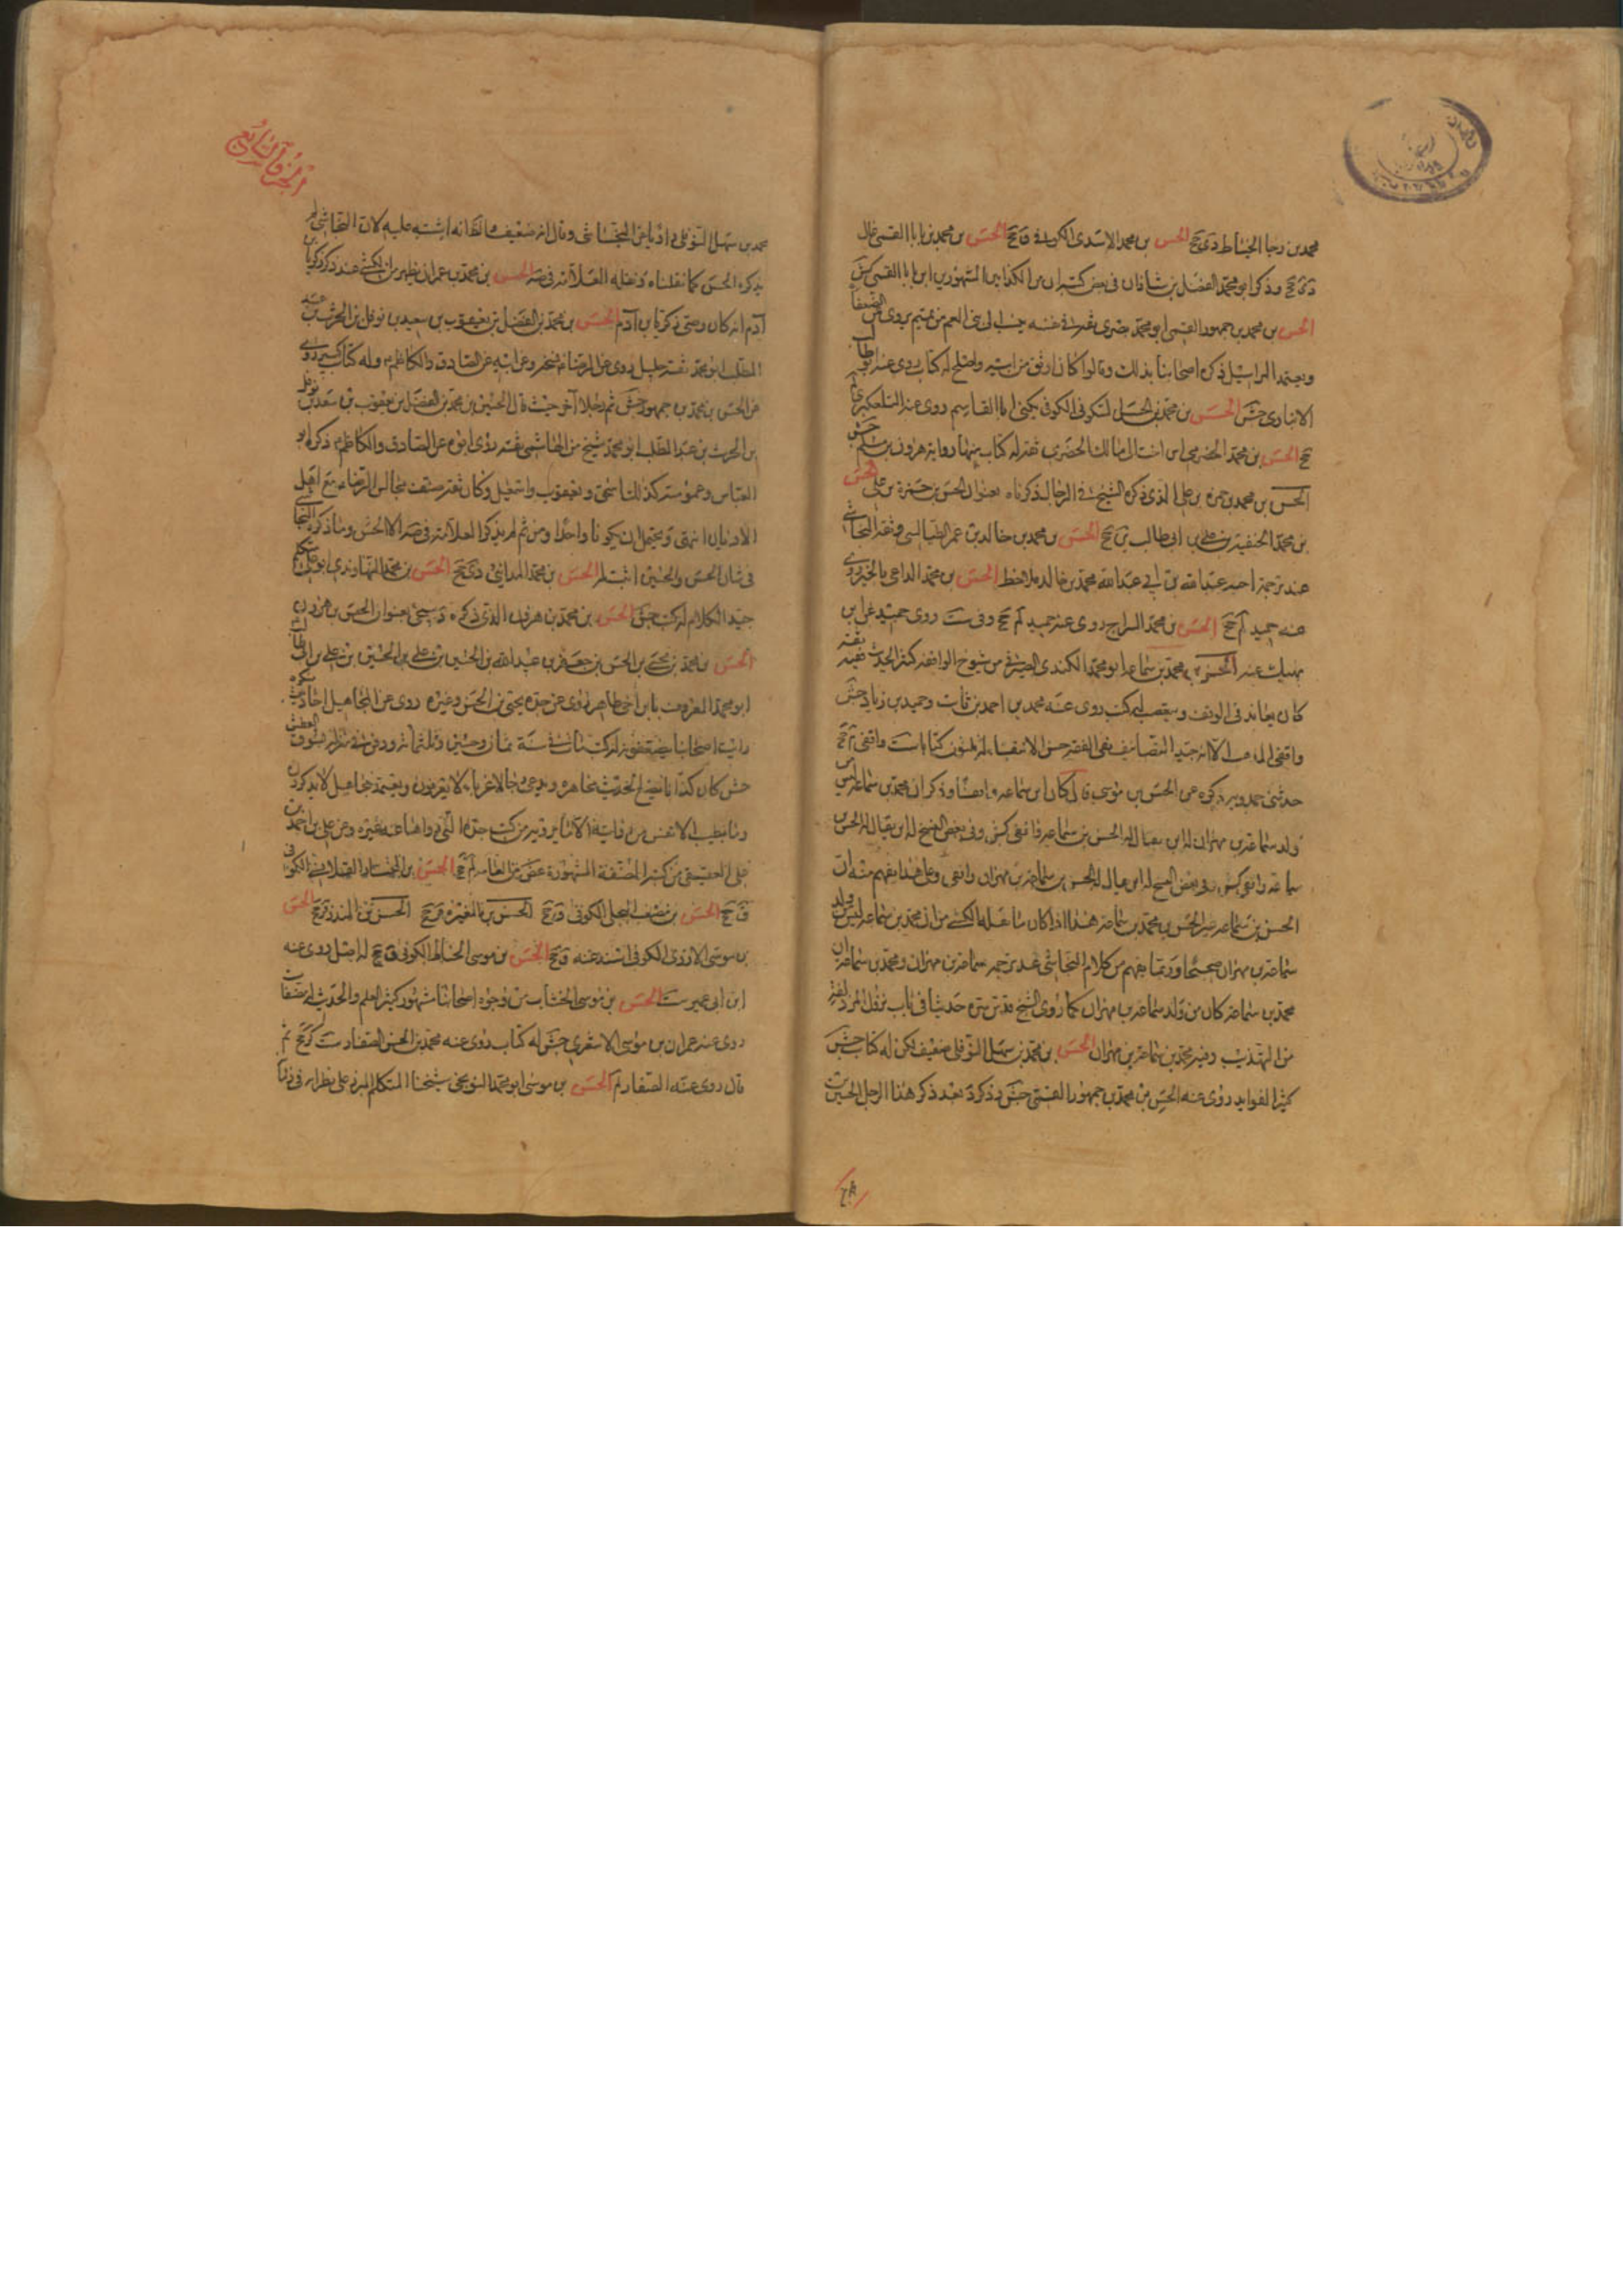 محمد بن رجا الخياط دى جح الحسن بن محمد الاسدى الكوفى ق جح الحسن بن محمد بن بابا القمى غال
دى جح وذكر ابو محمد الفضل بن شاذان فى بعض كتبه ان من الكذابين المشهورين ابن بابا القمى كش
الحسن بن محمد بن جمهور القمى ابو محمد بصرى ثقة فى نفسه ينسب الى بنى العم من تميم يروى عن الضعفا
ويعتمد المراسيل ذكره اصحابنا بذلك وقالوا كان اوثق من ابيه واصلح له كتاب روى عنه ابو طالب
الانبارى جش الحسن بن محمد بن الحسن السكونى الكوفى يكنى ابا القاسم روى عنه التلعكبرى لم
جح الحسن بن محمد الحضرمى ابن اخت ابى مالك الحضرمى ثقة له كتاب منها رواية هرون بن مسلم جش
الحسن بن محمد بن حمزة بن على الذى ذكره الشيخ فى الرجال ذكرناه بعنوان الحسن بن حمزة بن على الحسن
بن محمد الحنفية بن على بن ابى طالب ين جح الحسن بن محمد بن خالد بن عمر الطيالسى وثقه النجاشى
عند ترجمة اخيه عبد الله بن ابى عبد الله محمد بن خالد فلاحظ الحسن بن محمد الداعى بالخير روى
عنه حميد لم جح الحسن بن محمد السراج روى عنه حميد لم جح وفى ست روى حميد عن ابن
نهيك عنه الحسن بن محمد بن سماعة ابو محمد الكندى الصيرفى من شيوخ الواقفة كثير الحديث فقيه ثقة
كان يعاند فى الوقف ويتعصب له كتب روى عنه محمد بن احمد بن ثابت وحميد بن زياد جش
واقفى المذهب الا انه جيد التصانيف نقى الفقه حسن الانتقاء له ثلثون كتابا ست واقفى م جح
حدثنى حمدويه ذكره عن الحسن بن موسى قال كان ابن سماعة واقفا وذكر ان محمد بن سماعة ليس من
ولد سماعة بن مهران له ابن يقال له الحسن بن سماعة واقفى كش وفى بعض النسخ له ابن يقال له الحسن
سماعة واقفى كش وفى بعض النسخ له ابن يقال له الحسن بن سماعة بن مهران واقفى وعلى هذا يفهم منه ان
الحسن بن سماعة غير الحسن بن محمد بن سماعة هذا اذا كان ما نقله الكشى من ان محمد بن سماعة ليس من ولد
سماعة بن مهران صحيحا وربما يفهم من كلام النجاشى عند ترجمة سماعة بن مهران ومحمد بن سماعة ان
محمد بن سماعة كان من ولد سماعة بن مهران كما روى الشيخ قدس سره حديثا فى باب نزول المزدلفة
من التهذيب وفيه محمد بن سماعة بن مهران الحسن بن محمد بن سهل النوفلى ضعيف لكن له كتاب حسن
كثير الفوايد روى عنه الحسن بن محمد بن جمهور القمى جش وذكر د بعد ذكر هذا الرجل الحسين بن
الجزء الرابع
محمد بن سهل النوفلى وقال انه ضعيف والظاهر انه اشتبه عليه لان النجاشى لم
يذكره الحسن كما نقلناه ونقله العلامة فى صه الحسن بن محمد بن عمران يظهر من الكشى عند ذكر زكريا بن
آدم انه كان وصى زكريا بن آدم الحسن بن محمد بن الفضل بن يعقوب بن سعيد بن نوفل بن الحرث بن عبد
المطلب ابو محمد ثقة جليل روى عن الرضا نسخة وعن ابيه عن الصادق والكاظم وله كتاب كبير روى
عن الحسن بن محمد بن جمهور جش ثم رجلا آخر حيث قال الحسين بن محمد بن الفضل بن يعقوب بن سعد بن نوفل
بن الحرث بن عبد المطلب ابو محمد شيخ من الهاشمى ثقة روى ابوه عن الصادق والكاظم ذكره ابو
العباس وعمومته كذلك اسحق ويعقوب واسمعيل وكان ثقة صنف مجالس الرضا مع اهل
الاديان انتهى ويحتمل ان يكونا واحدا ومن ثم لم يذكر العلامة فى صه الا الحسن وما ذكره النجاشى
فى شان الحسن والحسين اثبته له الحسن بن محمد المداينى دى جح الحسن بن محمد النهاوندى ابو على متكلم
جيد الكلام له كتب جش الحسن بن محمد بن هرون الذى ذكره د سيجئ بعنوان الحسن بن هرون
الحسن بن محمد بن يحيى بن الحسن بن جعفر بن عبد الله بن الحسين بن على بن الحسين بن على بن ابى طالب
ابو محمد المعروف بابن اخى طاهر روى عن جده يحيى بن الحسن وغيره روى عن المجاهيل احاديث منكرة
رايت اصحابنا يضعفونه له كتب مات فى سنة ثمان وخمسين وثلثمائة ودفن فى منزله بسوق العطش
جش كان كذابا يضع الحديث مجاهرة ويدعى رجالا غرباء لا يعرفون ويعتمد مجاهيل لا يذكرون
وما تطيب الانفس من روايته الا فيما يرويه من كتب جده التى رواها عنه غيره وعن على بن احمد بن
على العقيقى من كتبه المصنفة المشهورة غض من العامة لم جح الحسن بن المختار القلانسى الكوفى
ق جح الحسن بن مصعب البجلى الكوفى ق جح الحسن بن المغيرة ق جح الحسن بن المنذر ق جح الحسن
بن موسى الازدى الكوفى اسند عنه ق جح الحسن بن موسى الحناط الكوفى ق جح له اصل روى عنه
ابن ابى عمير ست الحسن بن موسى الخشاب من وجوه اصحابنا مشهور كثير العلم والحديث له مصنفات
روى عنه عمران بن موسى الاشعرى جش له كتاب روى عنه محمد بن الحسن الصفار ست كر جح ثم
قال روى عنه الصفار لم الحسن بن موسى ابو محمد النوبختى شيخنا المتكلم المبرز على نظرائه فى زمانه